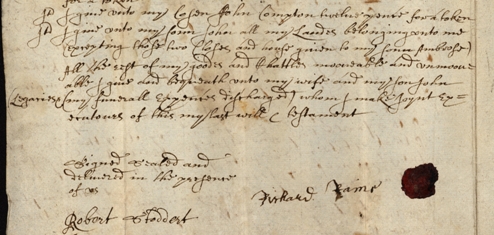 for a token
It I give unto my Cosen John Compton twelve pence for a token
It I give unto my sonn John all my Landes belonging unto me
excepting those two Closes and house given to my sonn Ambrose
All the rest of my godes and Chattles moveable and unmove
able I give and bequeath unto my wife and my son John
Legacies (my funerall Expences discharged) whom I make Joynt Ex=
ecutours of this my last will & testament
Signed Sealed and
delivered in the presence
of us
Richard
Robert Stoddert